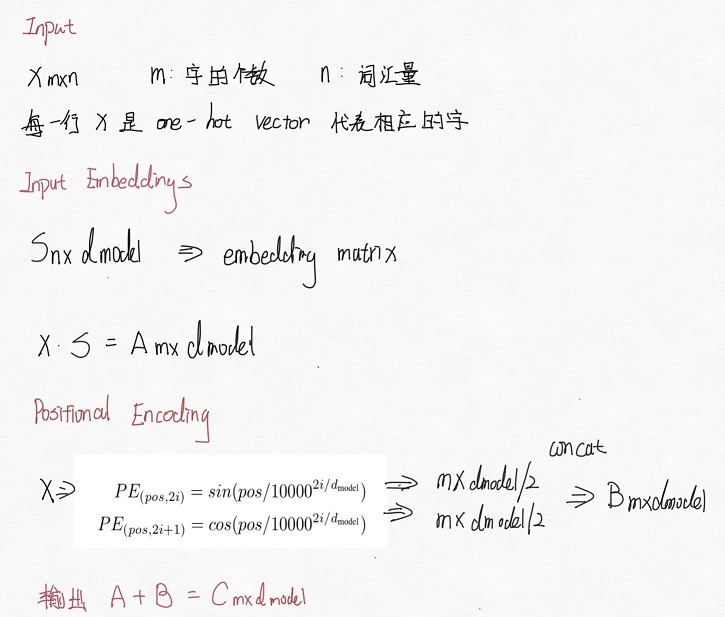 Input
X m×n m: 字的个数 n: 词汇量
每一行 X 是 one-hot vector 代表相应的字
Input Embeddings
S n×dmodel ⇒ embedding matrix
X · S = A m×dmodel
Positional Encoding
concat
X ⇒ PE(pos,2i) = sin(pos/10000^2i/dmodel) ⇒ m×dmodel/2 ⇒ B m×dmodel
PE(pos,2i+1) = cos(pos/10000^2i/dmodel) ⇒ m×dmodel/2
输出 A + B = C m×dmodel